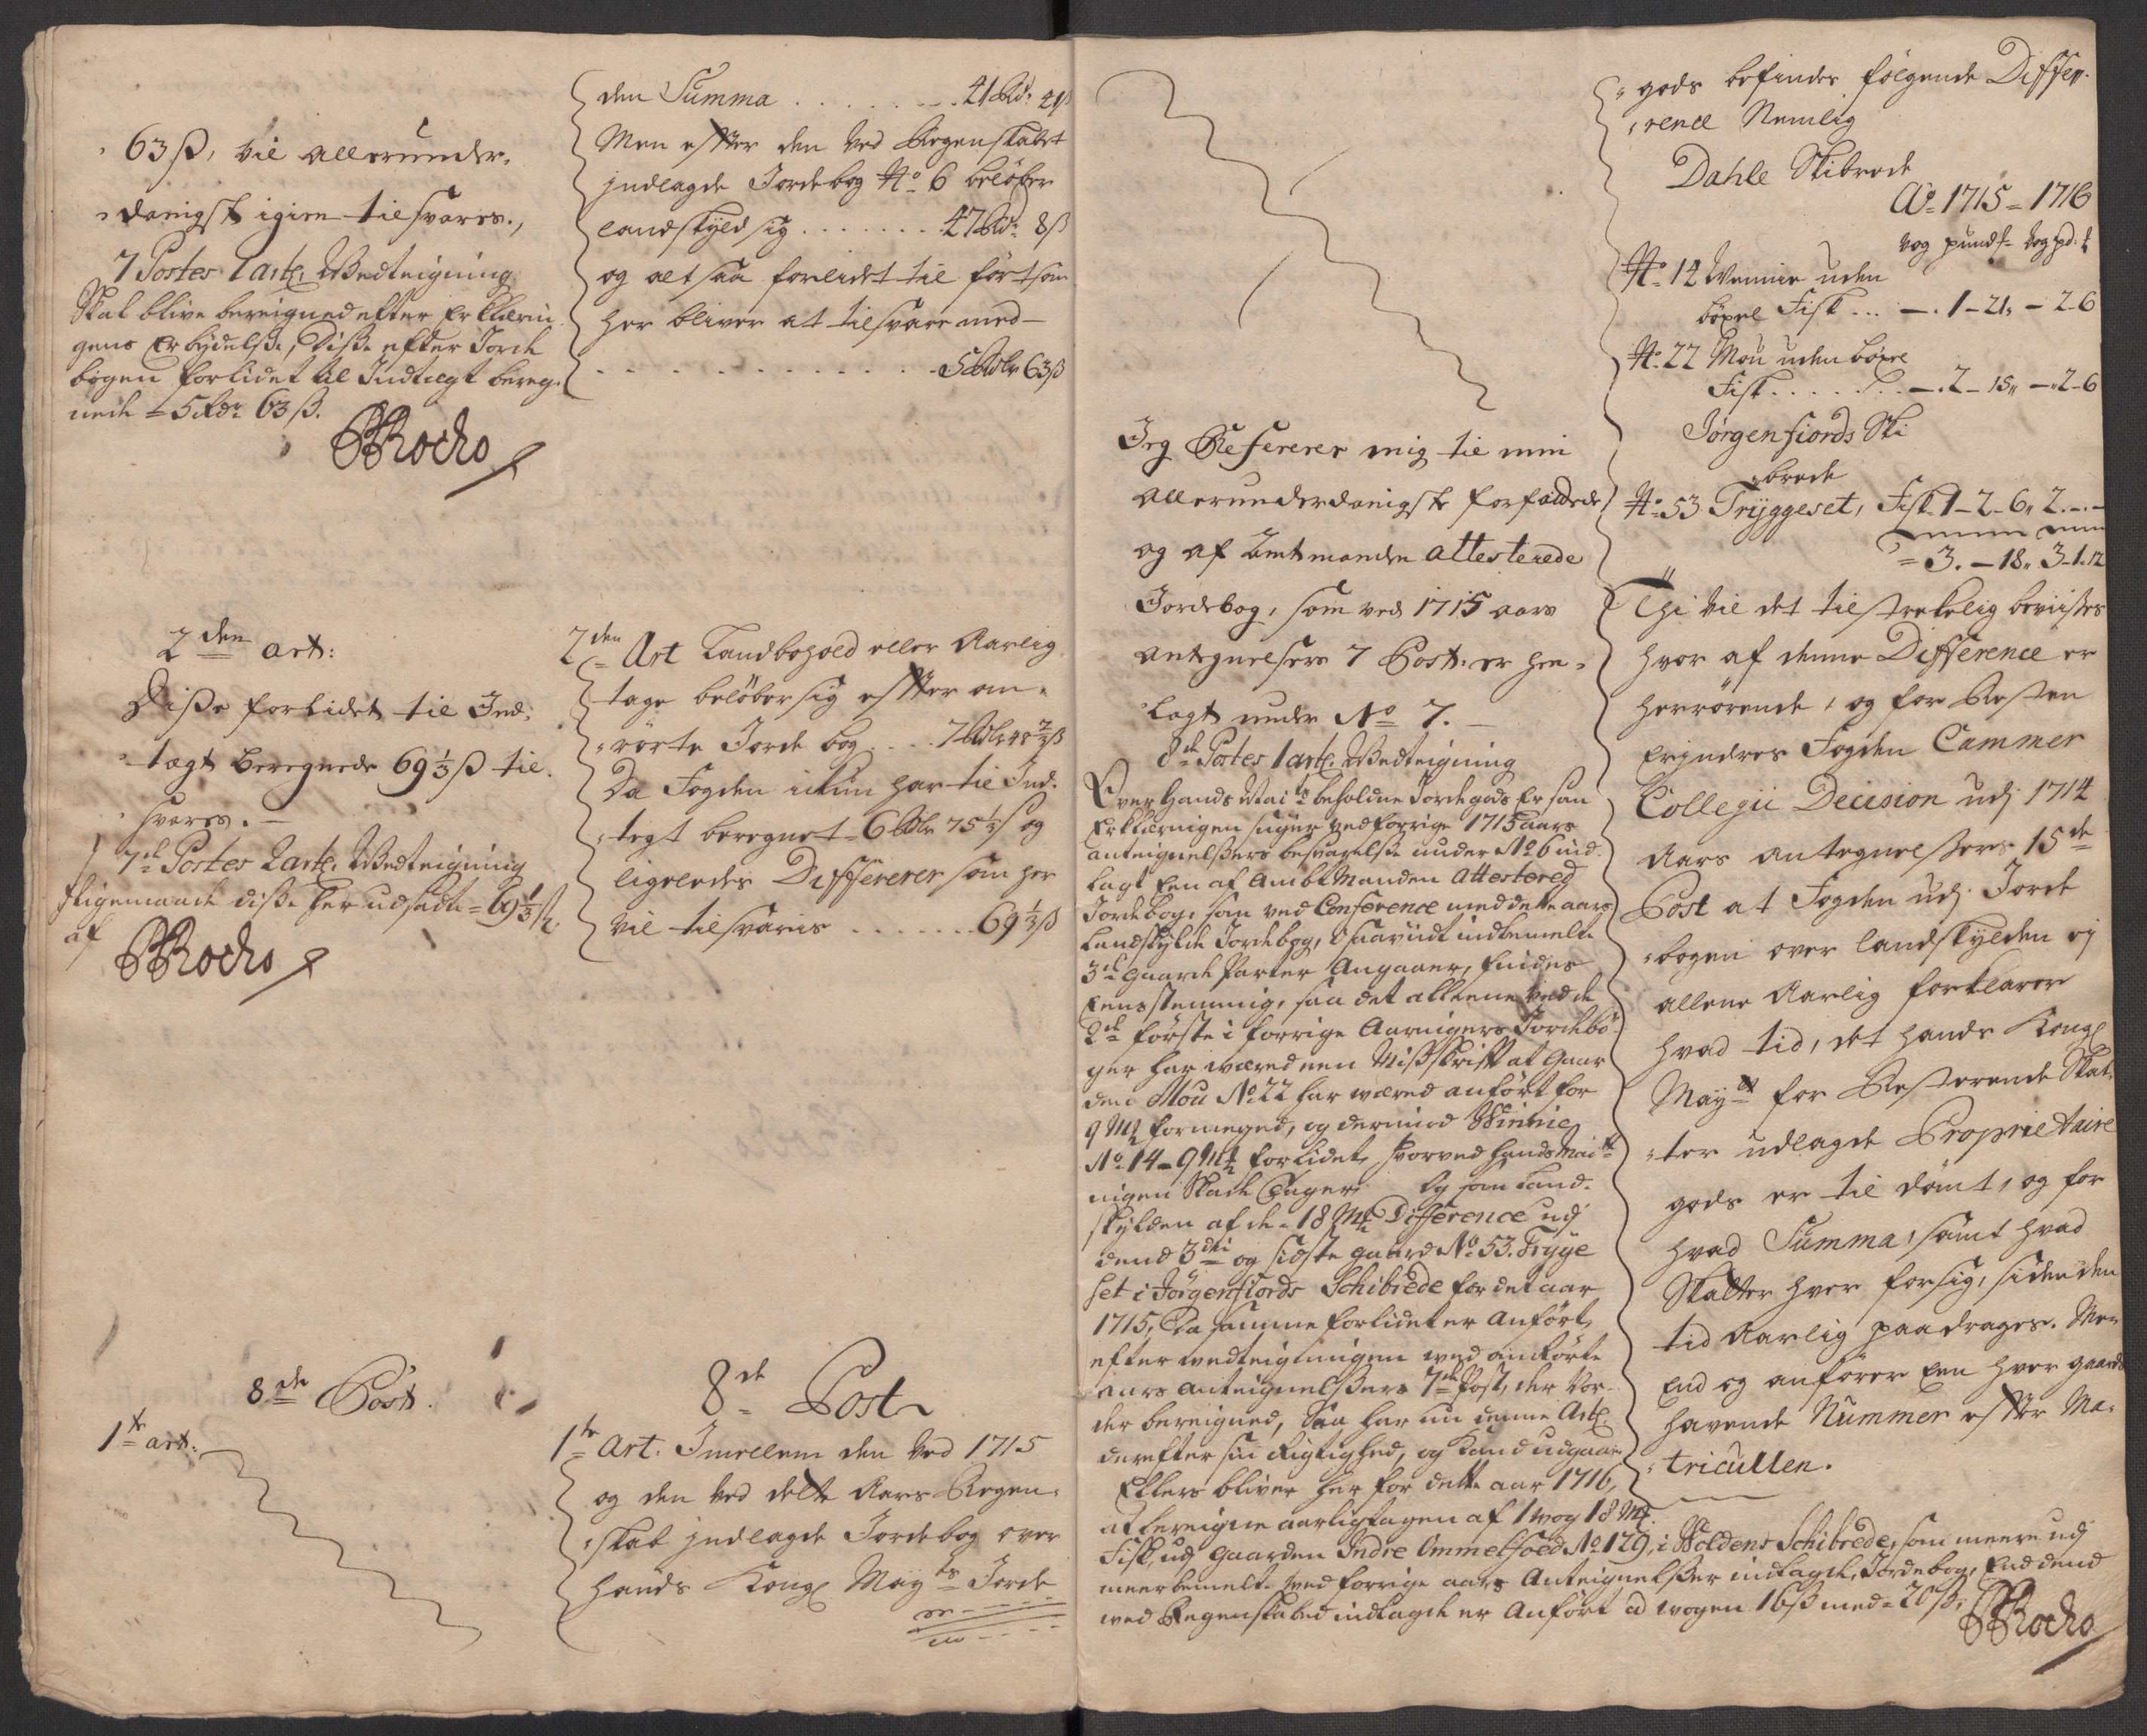 63 ß, vil allerunder,
danigst igien tilsvares.,
7 Postes 1 artl. Wedteigning
Skal blive bereigned efter Erklærin
gens Erbydelsße, Diße efter Jorde
bogen forlidet til Indtægt bereg.
nede = 5 Rdr 63 ß.
PRocho
2den art:
Diße forlidet til Ind,
tægt beregnede 69 1/3 ß til
svares. —
7de Postes 2 artl. Wedteigning
Ligemaade diße her udsadte = 69 1/3 ß
af
PRocho
8de Post.
1te art:
den Summa . . . . . . . . 41 Rdr 41 ß
Men efter den ved Regenskabet
indlagde Jordebog No 6 beløber
landskyld sig . . . . . . . 47 Rdr 8 ß
og altsaa forlidet til ført som
her bliver at tilsvare med —
. . . . . . . . . . . . 5 Rdlr 63 ß
2den Art Landbohold eller Aarlig
tage beløber sig efter an,
rørte Jorde bog . . . . 7 Rdlr 48 2/3 ß
Da Fogden ikun har til Ind,
tegt beregnet - 6 Rdlr 75 1/3 ß og
ligeledes Differerer som her
vil tilsvaris . . . . . . . 69 1/3 ß
8de Post
1te Art. Imellem den ved 1715
og den ved dette Aars Regen,
skab indlagde Jordebog over
hands Kongl Mayts Jorde
Jeg Refererer mig til min
allerunderdanigste forfattede
og af Amtmanden attesterede
Jordebog, som ved 1715 aars
antegnelsers 7 Post. er hen,
lagt under No 7. —
8de Postes 1 artl. Wedteigning
Over Hands Maits beholdne Jordegods er som
Erklæringen siger ved forrige 1715 aars
anteignelßers besvarelse under No 6 ind
lagt Een af Ambtmanden Attestered
Jordebog, som ved Conference med dette aars
Landskylds Jordebog, saavidt indbemelte
3de gaarde Parter Angaaer, findes
Eensstemmig, saa det alleene ved de
2de første i forrige Aaringers Jordebø-
ger har wæred een Mißskrifft at Gaar
den Mou No 22 har wæred anført for
9 Mk formeged, og derimod Winnie
No 14 - 9 Mk forlidet, hvorved hands Maitt
ingen Skade Tager. Og som Land-
skylden af de - 18 Mk Difference udj
dend 3die og sidste gaard No 53. Trygge
set i Jørgenfiords Schibrede for det aar
1715, Da samme forlidet er Anført,
efter wedteigningen wed anførte
aars Anteignelßers 7de Post, der Vor-
der bereigned, Saa har nu denne Artl.
derefter sin Rigtighed, og kand udgaae
Ellers bliver her for dette aar 1716,
at bereigne aarligtagen af 1 wog 18 Mk.
Fisk, udj gaarden Indre Ommelsoed No 129, i Woldens Schibrede, som meere udj
meerbemelte wed forrige aars Anteignelßer indlagde Jordebog, End dend
wed Regenskabed indlagde er Anført ad wogen 16 ß med = 20 ß,
PRocho
gods befindes følgende Diffe,
rence Nemlig
Dahle Skibrede
Ao 1715 - 1716
vog pund f- vog pd: f
No 14 Wennie uden
bøxel Fisk . . . — . 1 - 21, - 2 - 6
No 22 Mou uden bøxel
Fisk . . . . . . — . 2 - 15, — . 2 - 6
Jørgenfiords Ski
brede
No 53 Tryggeset, Fisk 1 - 2 - 6, 2 . - . -
= 3. - 18, 3 - 1. 12
Thi vil det tilstrekelig beviißes
hvor af denne Difference er
herrørende, og for Resten
Erindres Fogden Cammer
Collegii Decision udj 1714
Aars antegnelßers 15de
Post at Fogden udj Jorde
bogen over landskylden ej
allene Aarlig forklarer
hvad tid, det hands Kongl
Mayst for Resterende Skat,
ter udlagde Proprietaire
gods er til dømt, og for
hvad Summa, samt hvad
Skatter hver for sig, siden den
tid Aarlig paadrages. Men
End og anfører Een hver gaards
havende Nummer efter Ma,
tricullen.